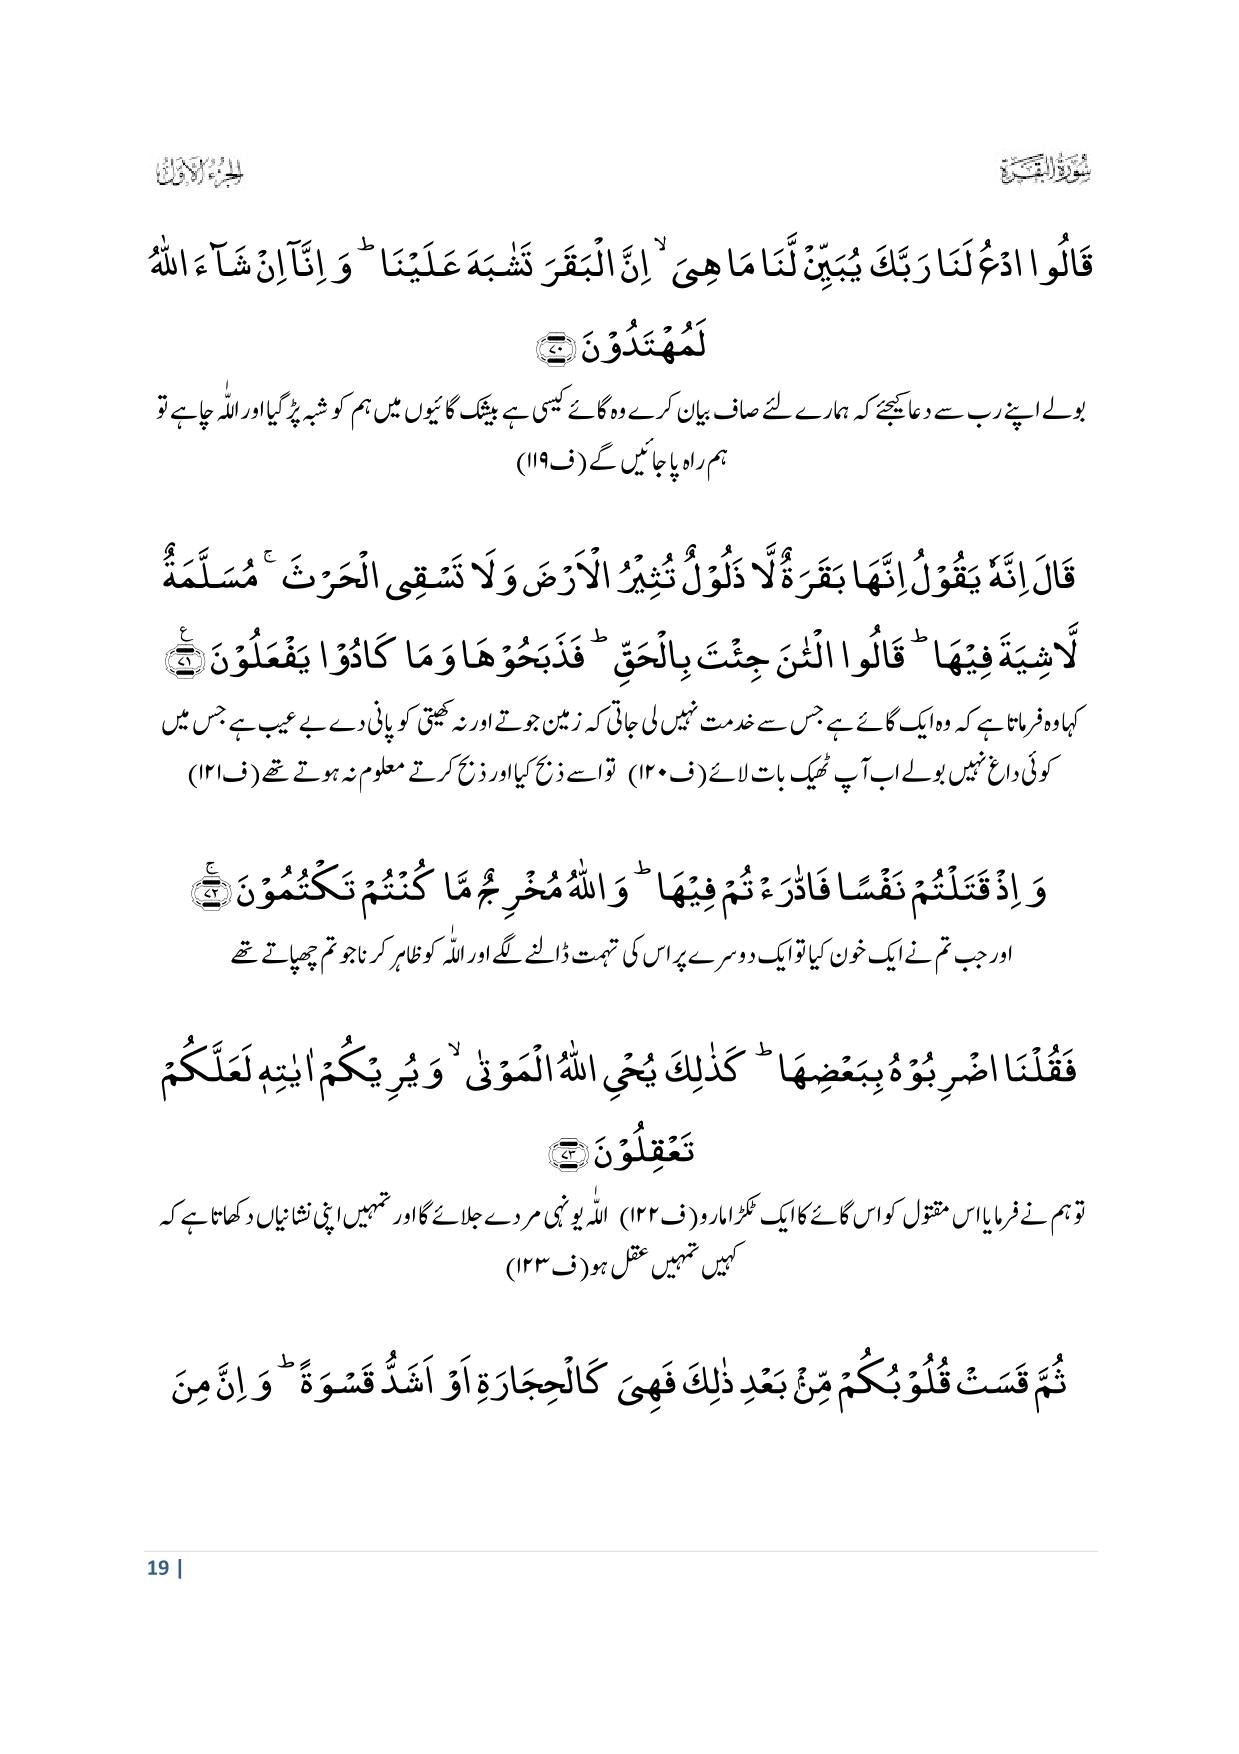 سُوْرَةُ الْبَقَرَة
الجزء الاول
قَالُوا ادْعُ لَنَا رَبَّكَ یُبَیِّنْ لَّنَا مَا هِیَ ۙ اِنَّ الْبَقَرَ تَشٰبَهَ عَلَیْنَا ؕ وَ اِنَّاۤ اِنْ شَآءَ اللّٰهُ
لَمُهْتَدُوْنَ ﴿۷۰﴾
بولے اپنے رب سے دعا کیجئے کہ ہمارے لئے صاف بیان کرے وہ گائے کیسی ہے بیشک گائیوں میں ہم کو شبہ پڑ گیا اور اللّٰہ چاہے تو
ہم راہ پا جائیں گے (ف۱۱۹)
قَالَ اِنَّهٗ یَقُوْلُ اِنَّهَا بَقَرَةٌ لَّا ذَلُوْلٌ تُثِیْرُ الْاَرْضَ وَ لَا تَسْقِی الْحَرْثَ ۚ مُسَلَّمَةٌ
لَّا شِیَةَ فِیْهَا ؕ قَالُوا الْـٰٔنَ جِئْتَ بِالْحَقِّ ؕ فَذَبَحُوْهَا وَ مَا كَادُوْا یَفْعَلُوْنَ ﴿۷۱﴾ ۠
کہا وہ فرماتا ہے کہ وہ ایک گائے ہے جس سے خدمت نہیں لی جاتی کہ زمین جوتے اور نہ کھیتی کو پانی دے بے عیب ہے جس میں
کوئی داغ نہیں بولے اب آپ ٹھیک بات لائے (ف۱۲۰) تو اسے ذبح کیا اور ذبح کرتے معلوم نہ ہوتے تھے (ف۱۲۱)
وَ اِذْ قَتَلْتُمْ نَفْسًا فَادّٰرَءْتُمْ فِیْهَا ؕ وَ اللّٰهُ مُخْرِجٌ مَّا كُنْتُمْ تَكْتُمُوْنَ ﴿۷۲﴾ ۚ
اور جب تم نے ایک خون کیا تو ایک دوسرے پر اس کی تہمت ڈالنے لگے اور اللّٰہ کو ظاہر کرنا جو تم چھپاتے تھے
فَقُلْنَا اضْرِبُوْهُ بِبَعْضِهَا ؕ كَذٰلِكَ یُحْیِ اللّٰهُ الْمَوْتٰی ۙ وَ یُرِیْكُمْ اٰیٰتِهٖ لَعَلَّكُمْ
تَعْقِلُوْنَ ﴿۷۳﴾
تو ہم نے فرمایا اس مقتول کو اس گائے کا ایک ٹکڑا مارو (ف۱۲۲) اللّٰہ یونہی مردے جلائے گا اور تمہیں اپنی نشانیاں دکھاتا ہے کہ
کہیں تمہیں عقل ہو (ف۱۲۳)
ثُمَّ قَسَتْ قُلُوْبُكُمْ مِّنْۢ بَعْدِ ذٰلِكَ فَهِیَ كَالْحِجَارَةِ اَوْ اَشَدُّ قَسْوَةً ؕ وَ اِنَّ مِنَ
19 |